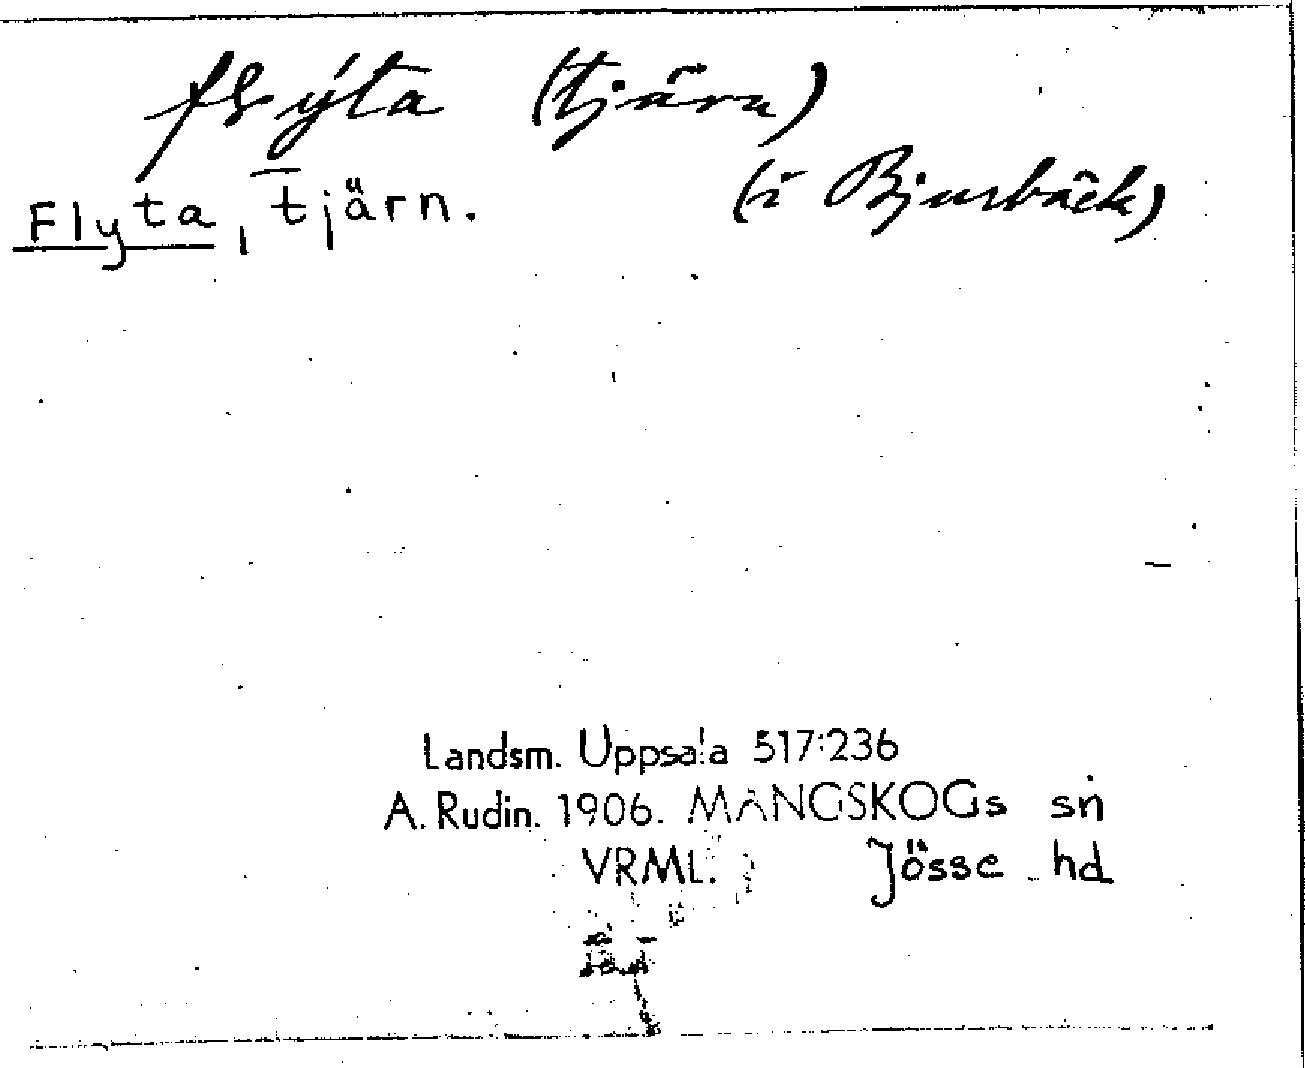 flýta (tjärn)
(i Bjurbäck)
Flyta, tjärn.
Landsm. Uppsala 517:236
A. Rudin. 1906. MANGSKOGs sn
VRML. Jösse hd